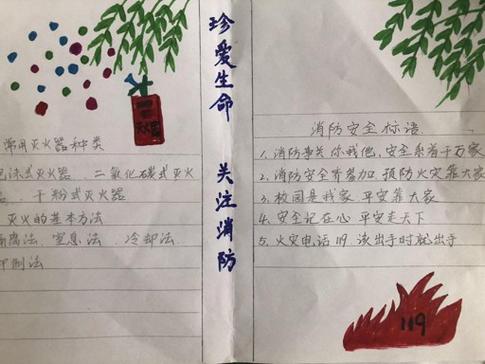 珍爱生命 关注消防
灭火器
常用灭火器种类
泡沫式灭火器、二氧化碳式灭火
器、干粉式灭火器
灭火的基本方法
隔离法、窒息法、冷却法、
抑制法
消防安全标语
1、消防事关你我他,安全系着千万家
2、消防安全齐参加 预防火灾靠大家
3、校园是我家 平安靠大家
4、安全记在心 平安走天下
5、火灾电话119 该出手时就出手
119